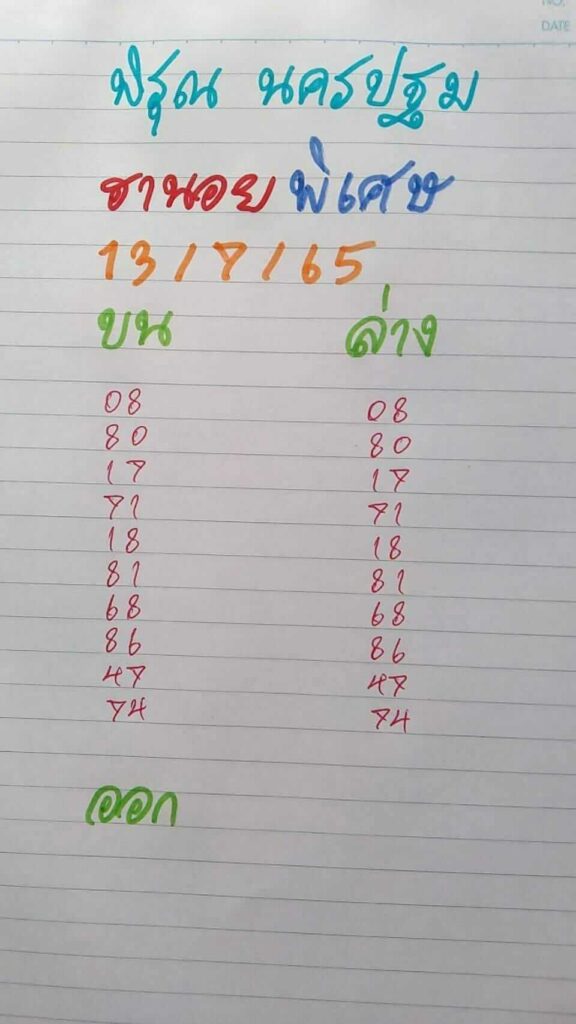 NO.
DATE
พิรุณ นครปฐม
ฮานอย พิเศษ
13/7/65
บน ล่าง
08 08
80 80
17 17
71 71
18 18
81 81
68 68
86 86
47 47
74 74
ออก